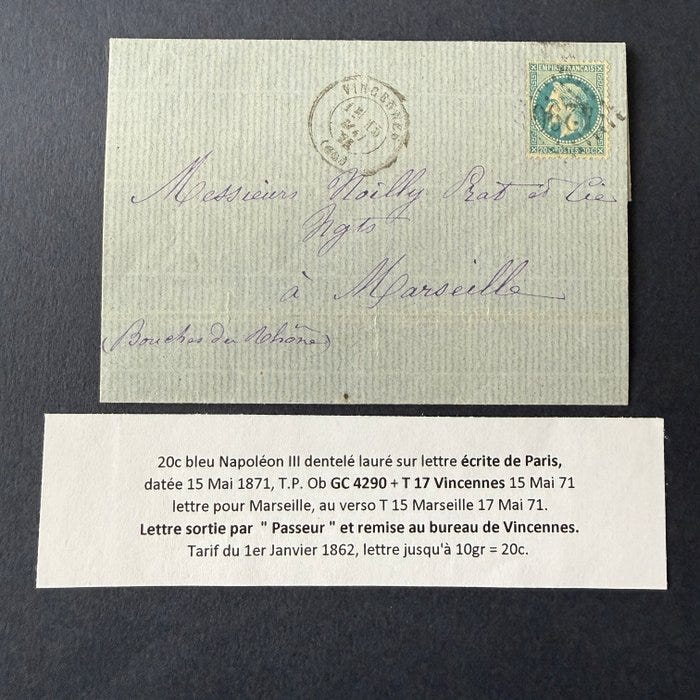 VINCENNES
15
MAI
71
(60)
EMPIRE FRANÇAIS
20c POSTES 20C
Messieurs Noilly Prat et Cie
Ngts
à Marseille
(Bouches du Rhône)
20c bleu Napoléon III dentelé lauré sur lettre écrite de Paris,
datée 15 Mai 1871, T.P. Ob GC 4290 + T 17 Vincennes 15 Mai 71
lettre pour Marseille, au verso T 15 Marseille 17 Mai 71.
Lettre sortie par " Passeur " et remise au bureau de Vincennes.
Tarif du 1er Janvier 1862, lettre jusqu'à 10gr = 20c.